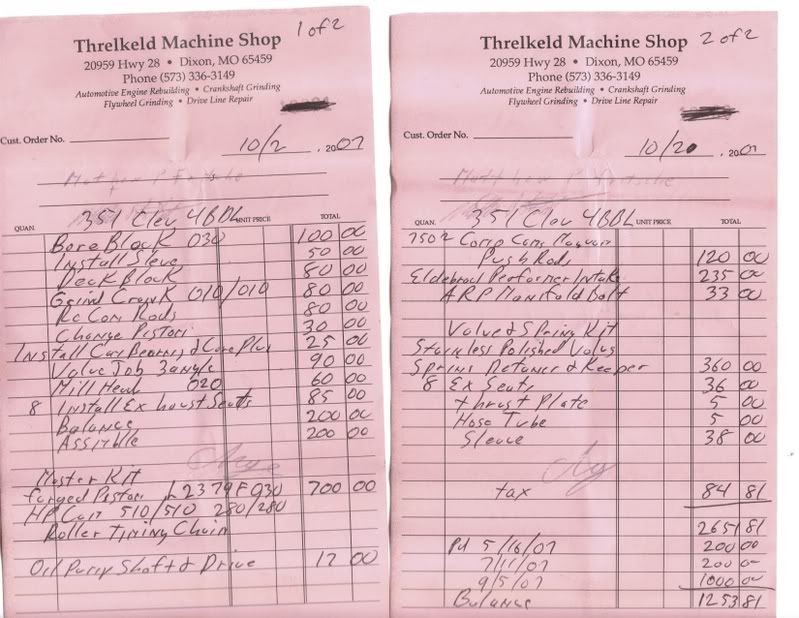 1 of 2
Threlkeld Machine Shop
20959 Hwy 28 • Dixon, MO 65459
Phone (573) 336-3149
Automotive Engine Rebuilding • Crankshaft Grinding
Flywheel Grinding • Drive Line Repair
Cust. Order No.
10/2, 2007
351 Clev 4BBL
QUAN. UNIT PRICE TOTAL
Bore Block 030 100 00
Install Sleve 50 00
Deck Block 80 00
Grind Crank 010/010 80 00
Rc Con Rods 80 00
Change Piston 30 00
Install Cam Bearing & Core Plus 25 00
Valve Job 3 angle 90 00
Mill Head 020 60 00
8 Install Exhoust Seats 85 00
Balance 200 00
Assimble 200 00
Master Kit
forged Piston L2379F 030 700 00
HP Cam 510/510 280/280
Roller Timing Chain
Oil Pump Shaft & Drive 17 00
2 of 2
Threlkeld Machine Shop
20959 Hwy 28 • Dixon, MO 65459
Phone (573) 336-3149
Automotive Engine Rebuilding • Crankshaft Grinding
Flywheel Grinding • Drive Line Repair
Cust. Order No.
10/2, 2007
351 Clev 4BBL
QUAN. UNIT PRICE TOTAL
Comp Cams
Push Rods 120 00
Eldebrod Performer Intake 235 00
ARP Manifold Bolt 33 00
Valve & Spring Kit
Stainless Polished Valve
Spring Retaner & Keeper 360 00
8 Ex Seats 36 00
thrust Plate 5 00
Hose Tube 5 00
Sleeve 38 00
tax 84 81
2651 81
Pd 5/16/07 200 00
7/11/07 200 00
9/5/07 1000 00
Balance 1253 81